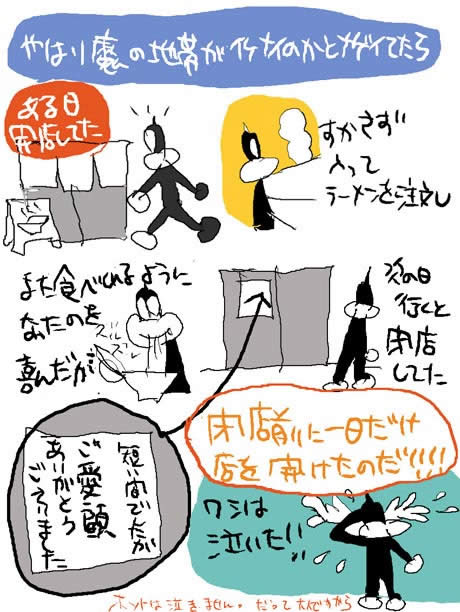 やはり魔の地帯がイケナイのかとナゲイてたら
ある日
開店してた
すかさず
入って
ラーメンを注文し
また食べれるように
なったのを
喜んだが
次の日
行くと
閉店
してた
短い間でしたが
ご愛顧
ありがとう
ございました
閉店前に一日だけ
店を開けたのだ!!!!
ワシは
泣いたい!!
ホントは泣きません。だって大人だから